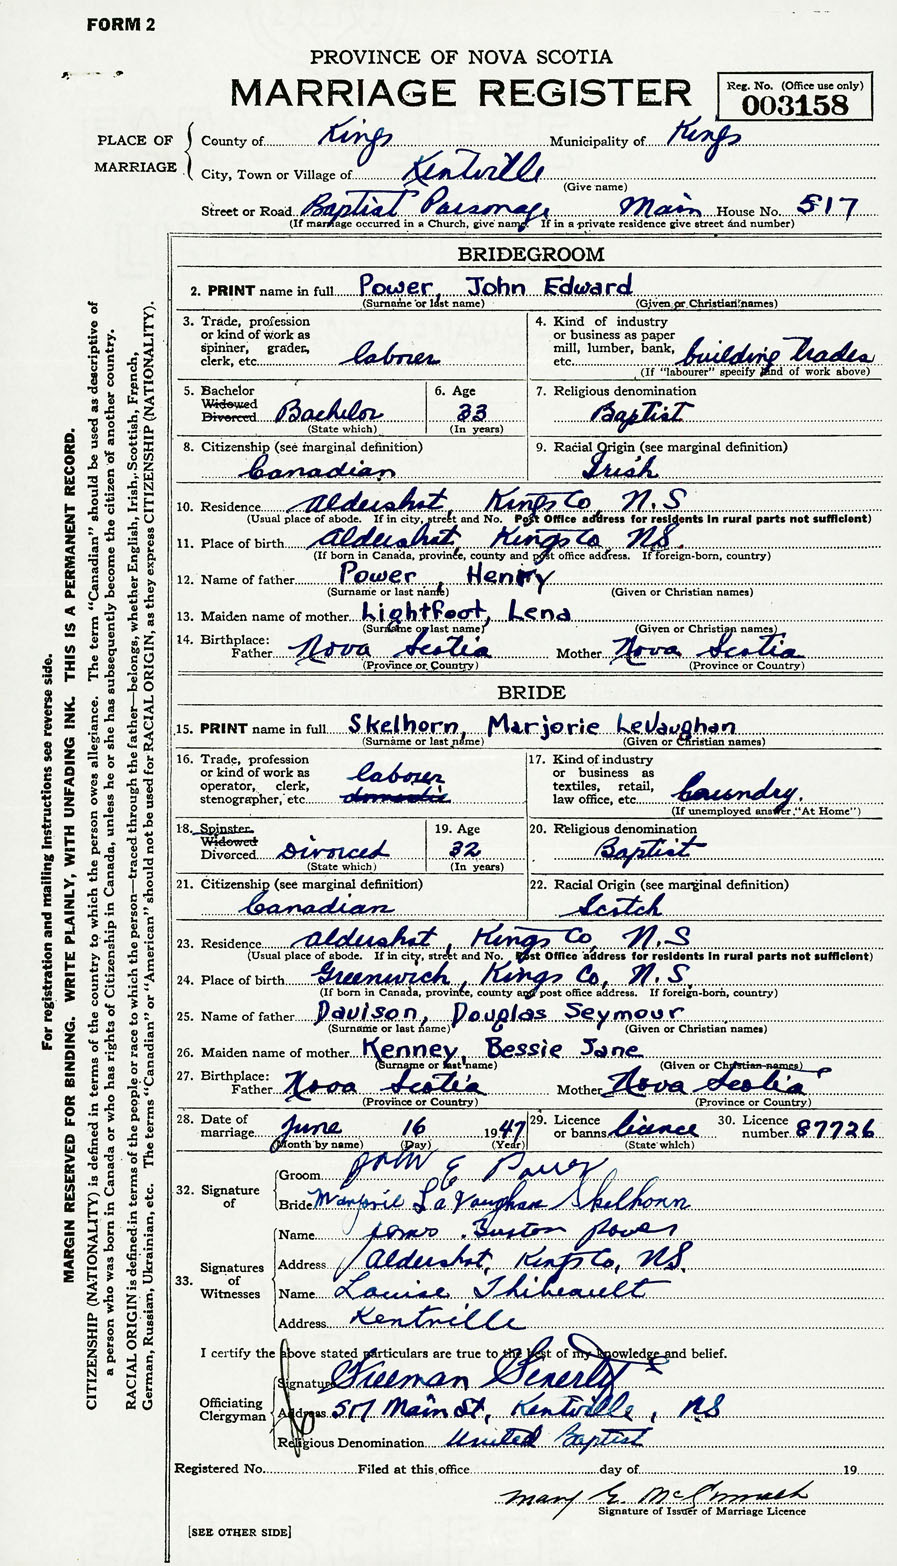 FORM 2
PROVINCE OF NOVA SCOTIA
MARRIAGE REGISTER
Reg. No. (Office use only)
003158
PLACE OF MARRIAGE
County of Kings Municipality of Kings
City, Town or Village of Kentville
(Give name)
Street or Road Baptist Parsonage Main House No. 517
(If marriage occurred in a Church, give name. If in a private residence give street and number)
BRIDEGROOM
2. PRINT name in full Power, John Edward
(Surname or last name) (Given or Christian names)
3. Trade, profession or kind of work as spinner, grader, clerk, etc. laborer
4. Kind of industry or business as paper mill, lumber, bank, etc. building trades
(If "labourer" specify kind of work above)
5. Bachelor Widowed Divorced Bachelor
(State which)
6. Age 33
(In years)
7. Religious denomination
Baptist
8. Citizenship (see marginal definition)
Canadian
9. Racial Origin (see marginal definition)
Irish
10. Residence Aldershot, Kings Co, N.S
(Usual place of abode. If in city, street and No. Post Office address for residents in rural parts not sufficient)
11. Place of birth Aldershot, Kings Co, N.S.
(If born in Canada, province, county and post office address. If foreign-born, country)
12. Name of father Power, Henry
(Surname or last name) (Given or Christian names)
13. Maiden name of mother Lightfoot, Lena
(Surname or last name) (Given or Christian names)
14. Birthplace:
Father Nova Scotia Mother Nova Scotia
(Province or Country) (Province or Country)
BRIDE
15. PRINT name in full Skelhorn, Marjorie LeVaughan
(Surname or last name) (Given or Christian names)
16. Trade, profession or kind of work as operator, clerk, stenographer, etc. laborer domestic
17. Kind of industry or business as textiles, retail, law office, etc. Laundry.
(If unemployed answer "At Home")
18. Spinster Widowed Divorced Divorced
(State which)
19. Age 32
(In years)
20. Religious denomination
Baptist
21. Citizenship (see marginal definition)
Canadian
22. Racial Origin (see marginal definition)
Scotch
23. Residence Aldershot, Kings Co, N.S
(Usual place of abode. If in city, street and No. Post Office address for residents in rural parts not sufficient)
24. Place of birth Greenwich, Kings Co, N.S.
(If born in Canada, province, county and post office address. If foreign-born, country)
25. Name of father Davison, Douglas Seymour
(Surname or last name) (Given or Christian names)
26. Maiden name of mother Kenney, Bessie Jane
(Surname or last name) (Given or Christian names)
27. Birthplace:
Father Nova Scotia Mother Nova Scotia
(Province or Country) (Province or Country)
28. Date of marriage June 16 1947
(Month by name) (Day) (Year)
29. Licence or banns licence
(State which)
30. Licence number 87726
32. Signature of
Groom John E Power
Bride Marjorie LaVaughan Skelhorn
33. Signatures of Witnesses
Name Burton Power
Address Aldershot, Kings Co, N.S.
Name Louise Thibeault
Address Kentville
I certify the above stated particulars are true to the best of my knowledge and belief.
Officiating Clergyman
Signature Freeman Fenerty
Address 517 Main St, Kentville, N.S
Religious Denomination United Baptist
Registered No. Filed at this office day of 19
Mary E. McCormack
Signature of Issuer of Marriage Licence
[SEE OTHER SIDE]
For registration and mailing instructions see reverse side.
MARGIN RESERVED FOR BINDING. WRITE PLAINLY, WITH UNFADING INK. THIS IS A PERMANENT RECORD.
CITIZENSHIP (NATIONALITY) is defined in terms of the country to which the person owes allegiance. The term "Canadian" should be used as descriptive of
a person who was born in Canada or who has rights of Citizenship in Canada, unless he or she has subsequently become the citizen of another country.
RACIAL ORIGIN is defined in terms of the people or race to which the person—traced through the father—belongs, whether English, Irish, Scottish, French,
German, Russian, Ukrainian, etc. The terms "Canadian" or "American" should not be used for RACIAL ORIGIN, as they express CITIZENSHIP (NATIONALITY).